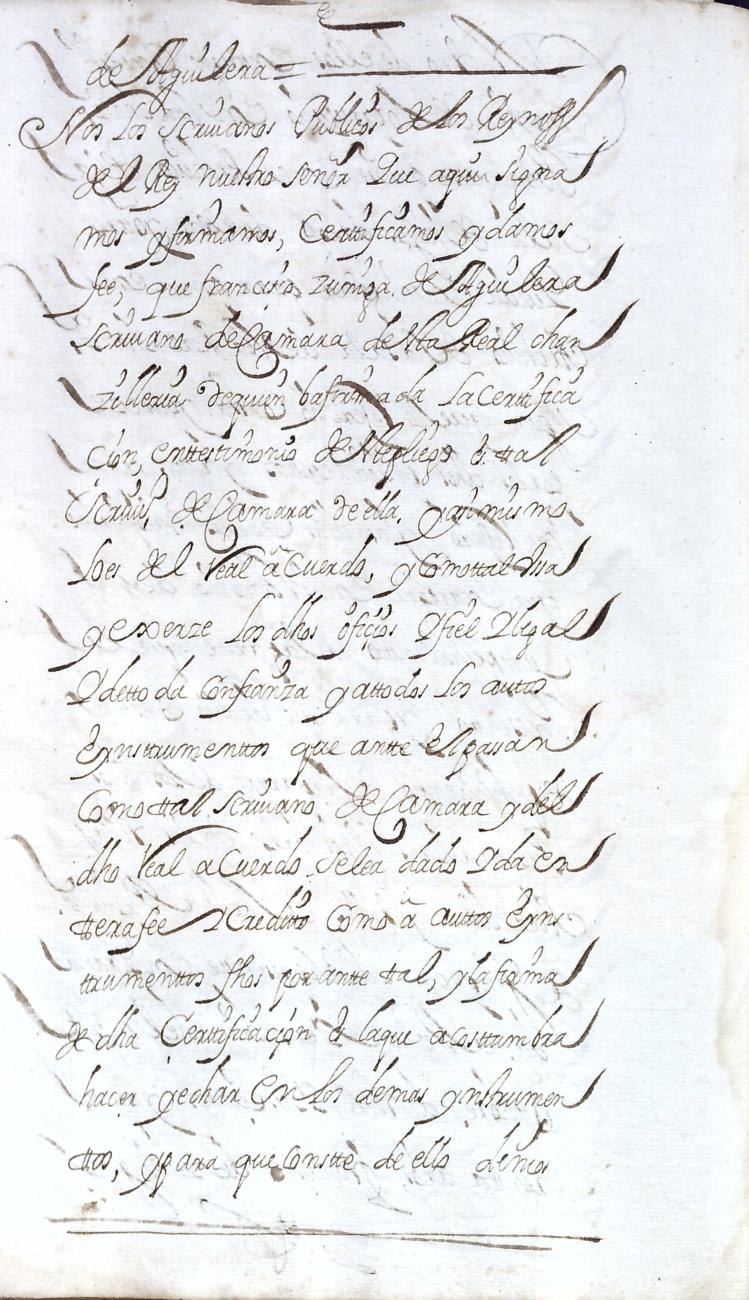 de Aguilera =
Nos los scriuanos Publicos de los Reynos
del Rey nuestro señor Que aqui signa
mos y firmamos, Certificamos y damos
fee, que francisco Zuniga de Aguilera
scriuano de Camara de sta Real chan
zilleria de quien ba firmada la Certifica
cion, en ttestimonio de ste pliego es ttal
scriuº de Camara de ella, y asimismo
lo es del Real aCuerdo, y Como ttal Vsa
y exerze los dhos ofiçios Y fiel Y legal
Y de tto da Confianza y a ttodos los autos
e ynsttrumenttos que antte el pasan
Como ttal scriuano de Camara y del
dho Real aCuerdo se le a dado Y da en
ttera fee Y Creditto Como a auttos e yns
ttrumenttos fhos por antte ttal, y la firma
de dha Certificaçion es la que acosttumbra
hacer y echar en los demas ynstrumen
ttos, y para que Constte de ello dimos